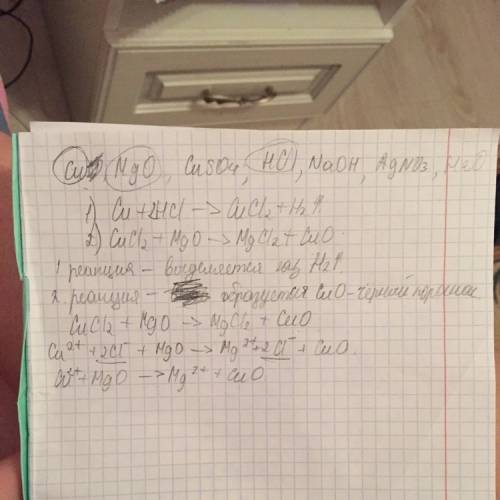 Cu, MgO, CuSO4, HCl, NaOH, AgNO3, H2O
1) Cu + 2HCl —> CuCl2 + H2↑.
2) CuCl2 + MgO —> MgCl2 + CuO.
1 реакция – выделяется газ H2↑.
2. реакция – образуется CuO – черный порошок
CuCl2 + MgO —> MgCl2 + CuO
Cu2+ + 2Cl- + MgO —> Mg2+ + 2Cl- + CuO.
Cu2+ + MgO —> Mg2+ + CuO